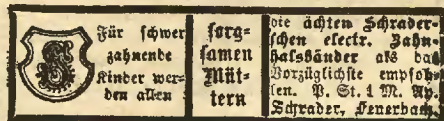 Für schwer
zahnende
Kinder wer-
den allen
sorg-
samen
Müt-
tern
die ächten Schrader-
schen electr. Zahn-
halsbänder als das
Vorzüglichste empfoh-
len. P. St. 1 M. Ap.
Schrader, Feuerbach